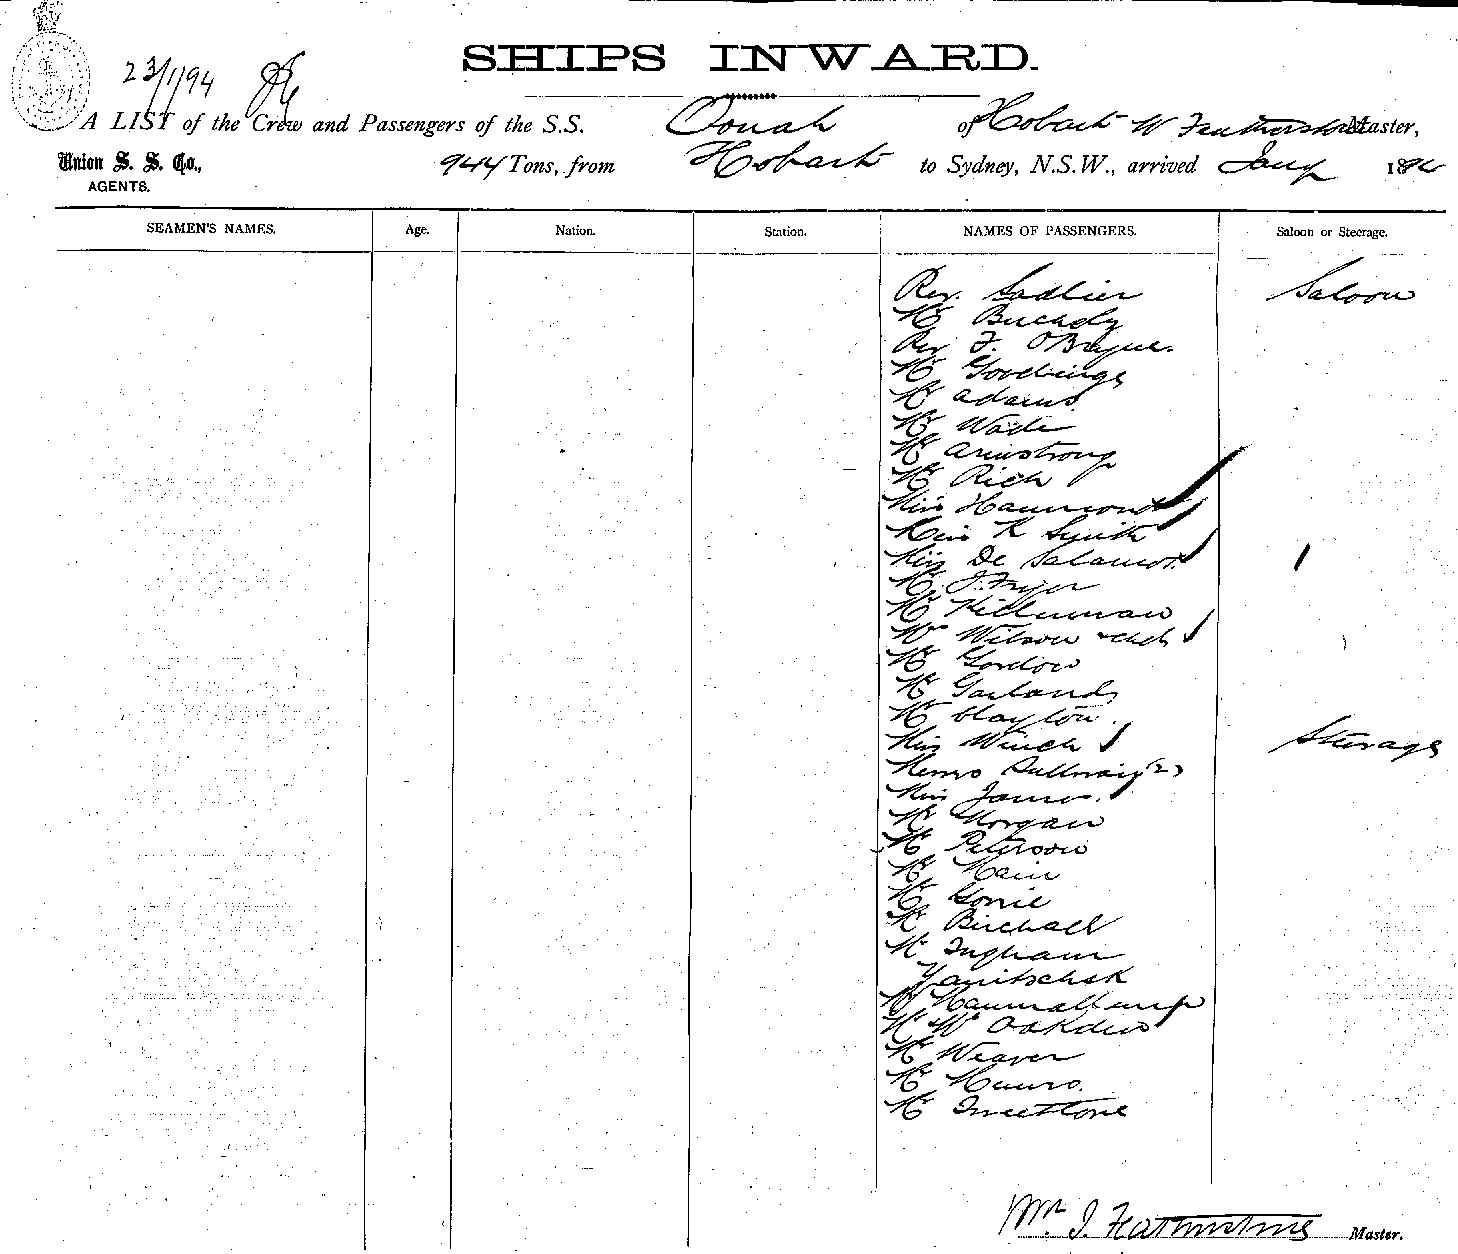 SHIPS INWARD.
23/1/94
A LIST of the Crew and Passengers of the S.S. Oonah of Hobart W Featherstone Master,
Union S. S. Co., 944 Tons, from Hobart to Sydney, N.S.W., arrived Jany 189
AGENTS.
SEAMEN'S NAMES. Age. Nation. Station. NAMES OF PASSENGERS. Saloon or Steerage.
Rev. Sadlier Saloon
Mr
Rev F. OBryne.
Mr Goodinge
Mr Adams
Mr Wade
Mr Armstrong
Mr Rich
Miss Hammond
Miss K Smith
Miss De
Mr J. Fryer
Mr
Mrs Wilson & chd
Mr Gordon
Mr Garland
Mr Clayton.
Miss Winch Steerage
(2)
Miss James.
Mr Morgan
Mr Peterson
Mr Main
Mr Gorrie
Mr Birchall
Mr Ingham
Yanitschek
Mr
Mr & Mrs Oakden
Mr Weaver
Mr Munro.
Mr
Featherstone Master.